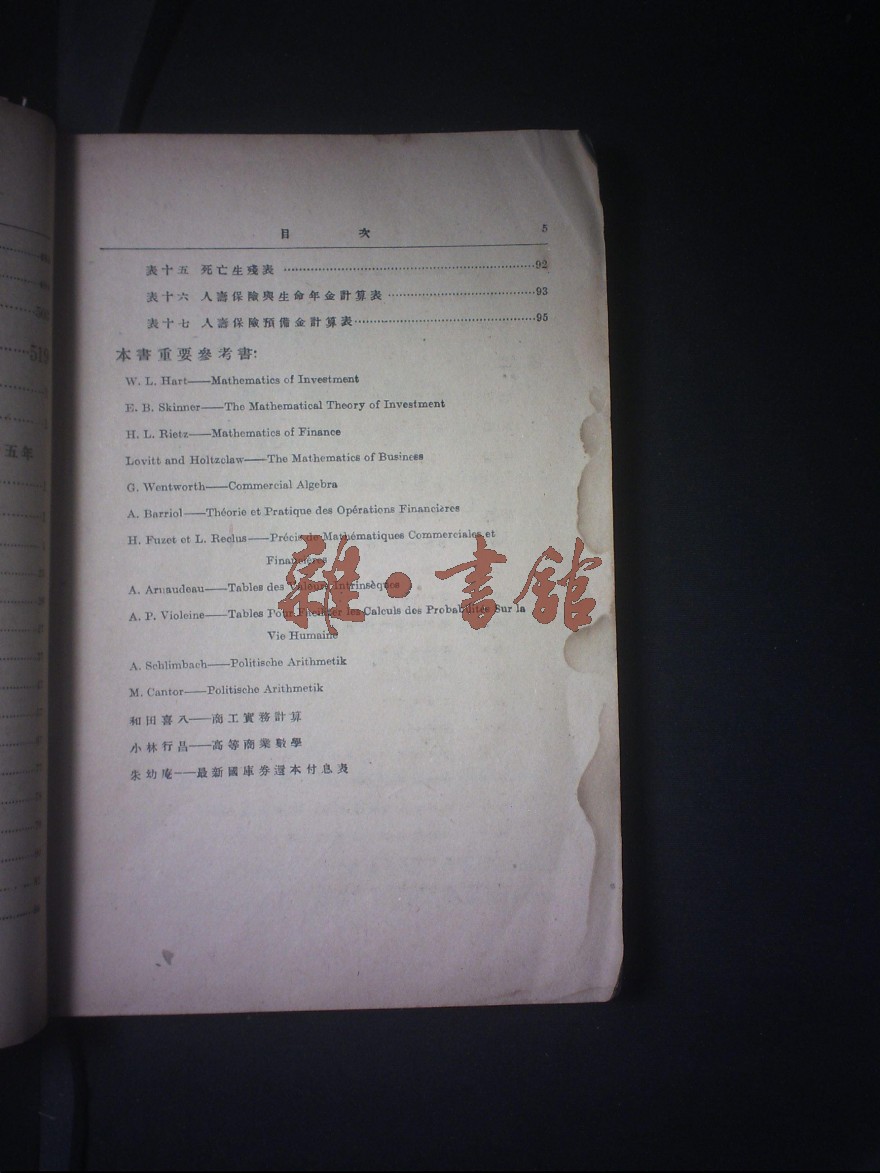 目 次 5
表十五 死亡生殘表 ……92
表十六 人壽保險與生命年金計算表 ……93
表十七 人壽保險預備金計算表……95
本書重要參考書:
W. L. Hart——Mathematics of Investment
E. B. Skinner——The Mathematical Theory of Investment
H. L. Rietz——Mathematics of Finance
Lovitt and Holtzclaw——The Mathematics of Business
G. Wentworth——Commercial Algebra
A. Barriol——Théorie et Pratique des Opérations Financières
H. Fuzet et L. Reclus——Précis de Mathématiques Commerciales et
Financières
A. Arnaudeau——Tables des Valeurs Intrinsèques
A. P. Violeine——Tables Pour Faciliter les Calculs des Probabilités Sur la
Vie Humaine
A. Schlimbach——Politische Arithmetik
M. Cantor——Politische Arithmetik
和田喜八——商工實務計算
小林行昌——高等商業數學
朱幼庵——最新國庫券還本付息表
雜·書館
519
五年